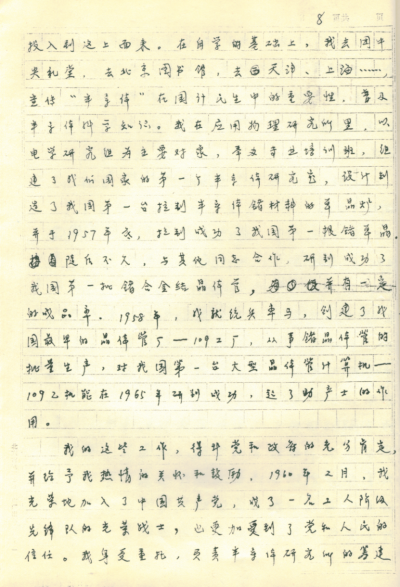 8
投入到这上面来。在自学的基础上，我去困中
央礼堂，去北京图书馆，去西天津、上海……，
宣传“半导体”在国计民生中的重要性，普及
半导体科学知识。我在应用物理研究所里，以
电学研究组为主要对象，举文字主培训班，组
建了我们国家的第一个半导体研究室，设计制
造了我国第一台拉制半导体锗材料的单晶炉，
并于1957年底，拉制成功了我国第一根锗单晶
随后不久，与其他同志合作，研制成功了
我国第一批锗合金结晶体管，并有一定
的成品率。1958年，我就统兵率马，创建了我
国最早的晶体管厂—109工厂，从事锗晶体管的
批量生产，对我国第一台大型晶体管计算机—
109乙机能在1965年研制成功，起了助产士的作
用。
我的这些工作，得到党和政府的充分肯定，
并给予我热情的关怀和鼓励。1960年2月，我
光荣地加入了中国共产党，成了一名工人阶级
先锋队的光荣战士，也更加受到了党和人民的
信任。我身受重托，负责半导体研究所的筹建